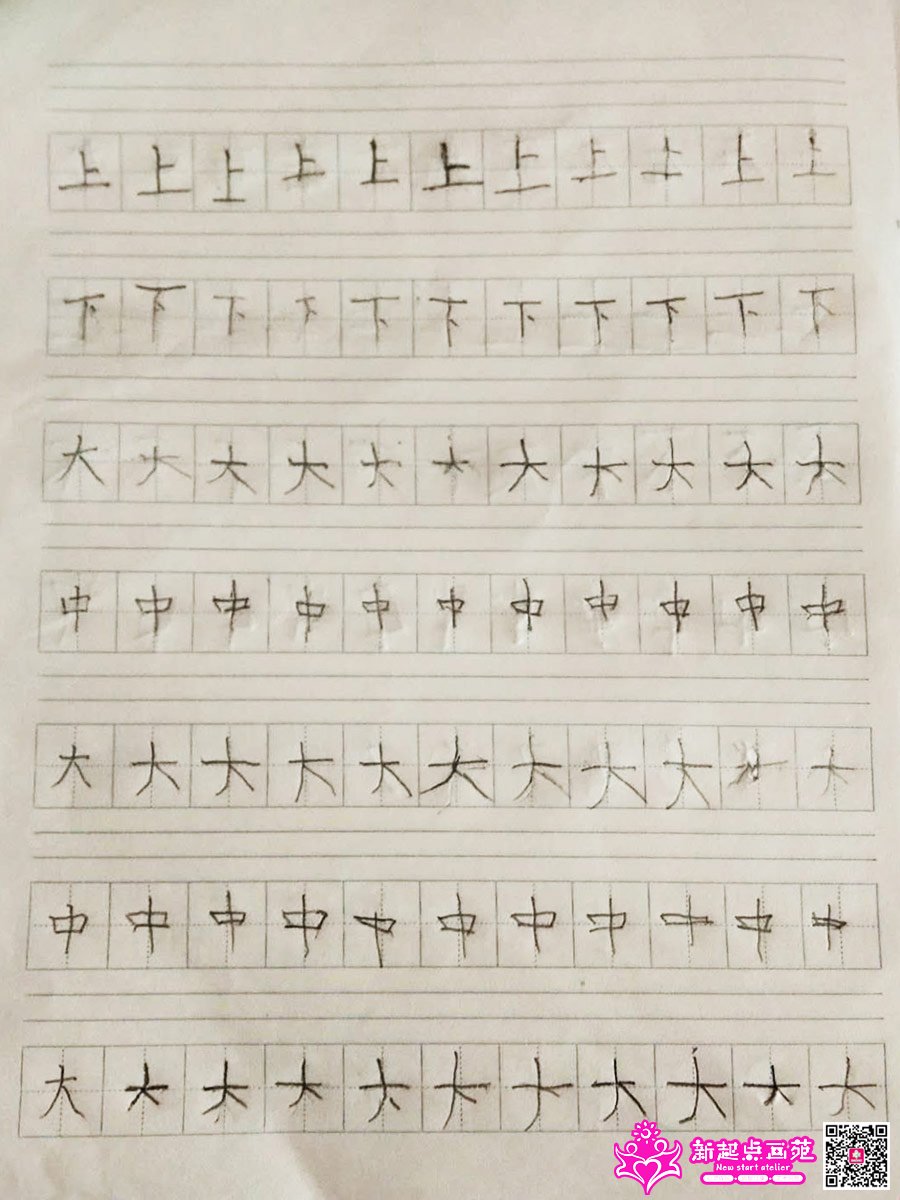 上上上上上上上上上上上
下下下下下下下下下下下
大大大大大大大大大大大
中中中中中中中中中中中
大大大大大大大大大大大
中中中中中中中中中中中
大大大大大大大大大大大
新起点画苑
New start atelier